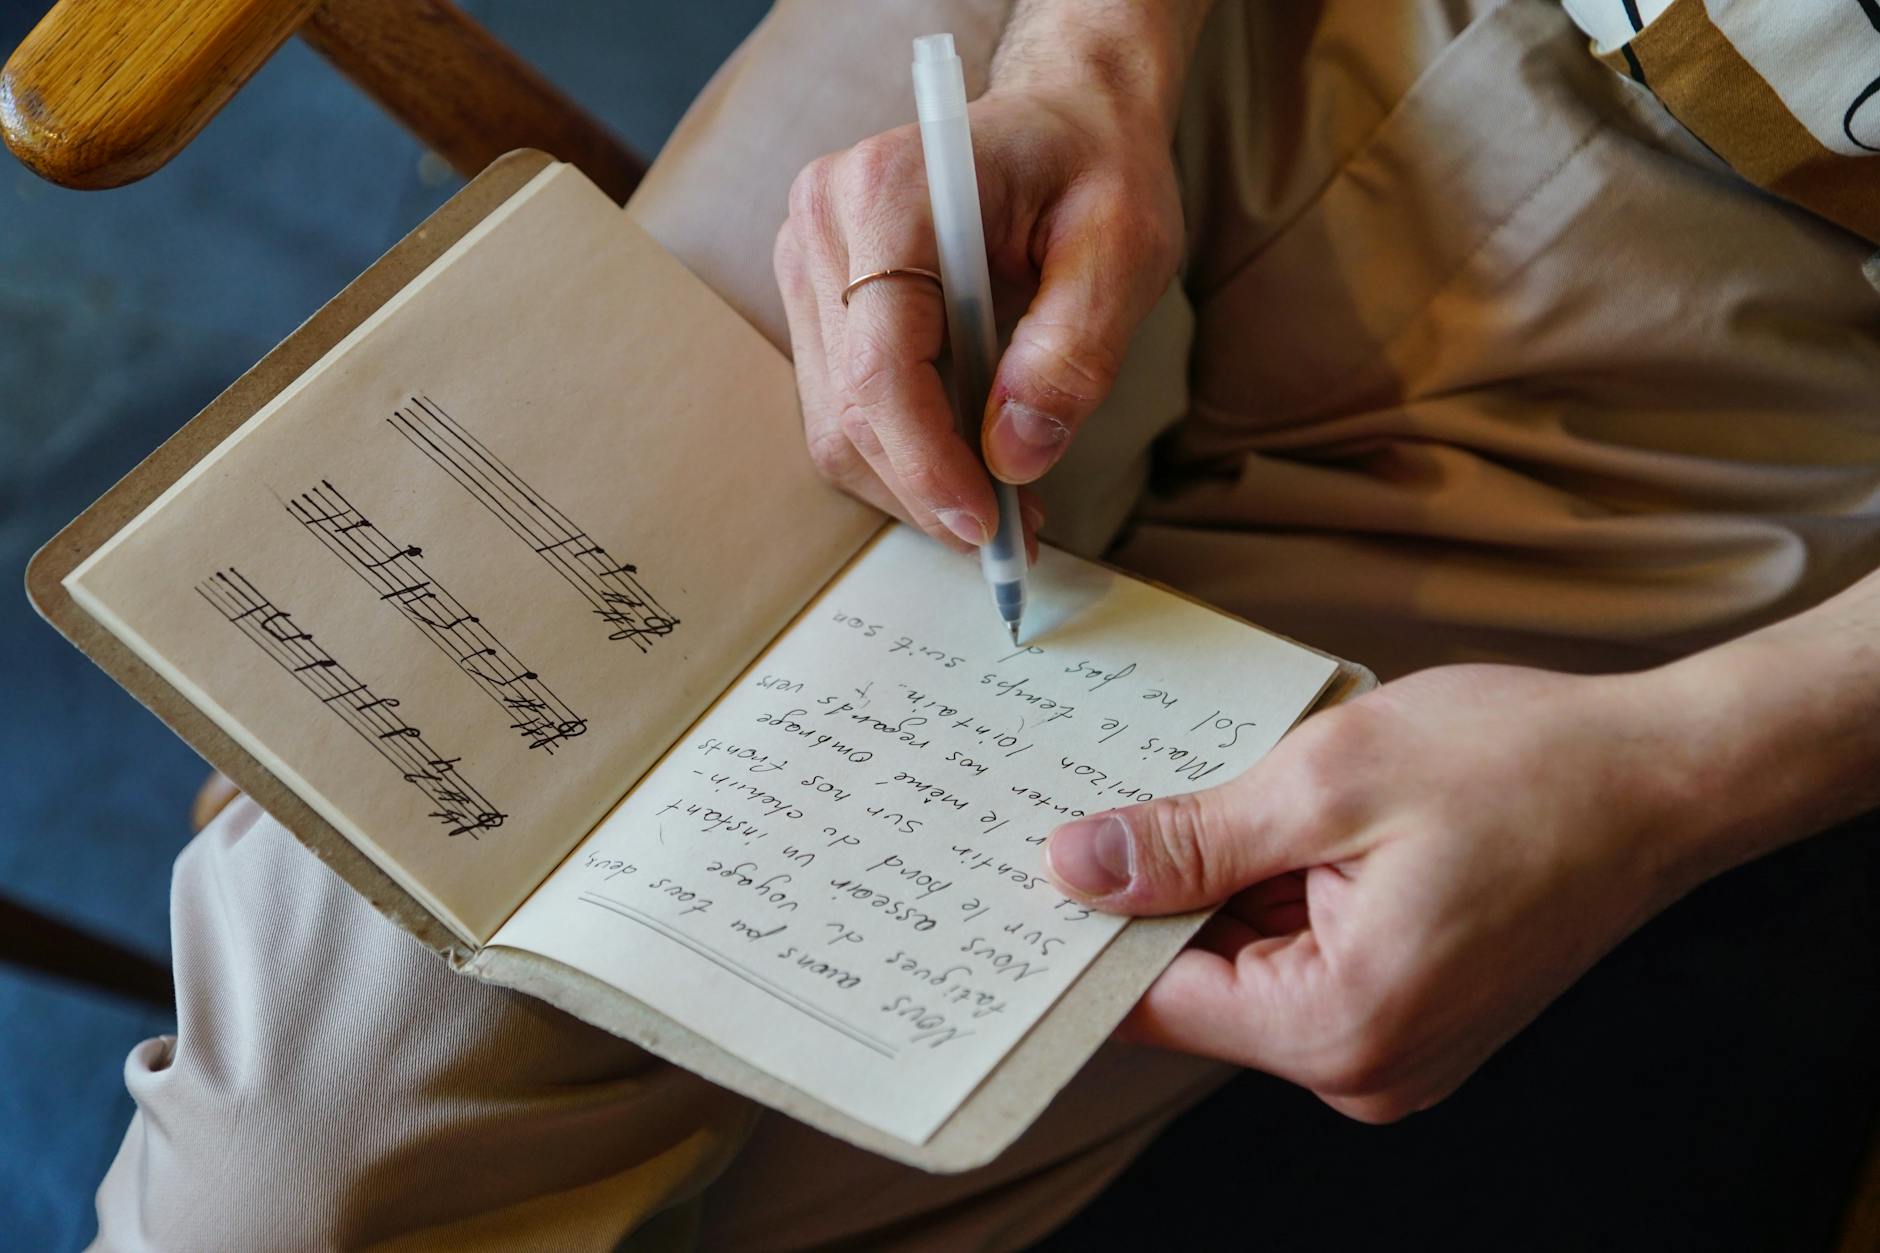 Nous aurions pu tous deux,
fatigués du voyage
Nous asseoir un instant
sur le bord du chemin-
Et sentir sur nos fronts
le même ombrage
nos regards vers
horizon lointain.
Mais le temps suit son
Sol ne pas d